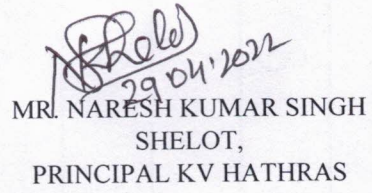 29 04'2022
MR. NARESH KUMAR SINGH
SHELOT,
PRINCIPAL KV HATHRAS